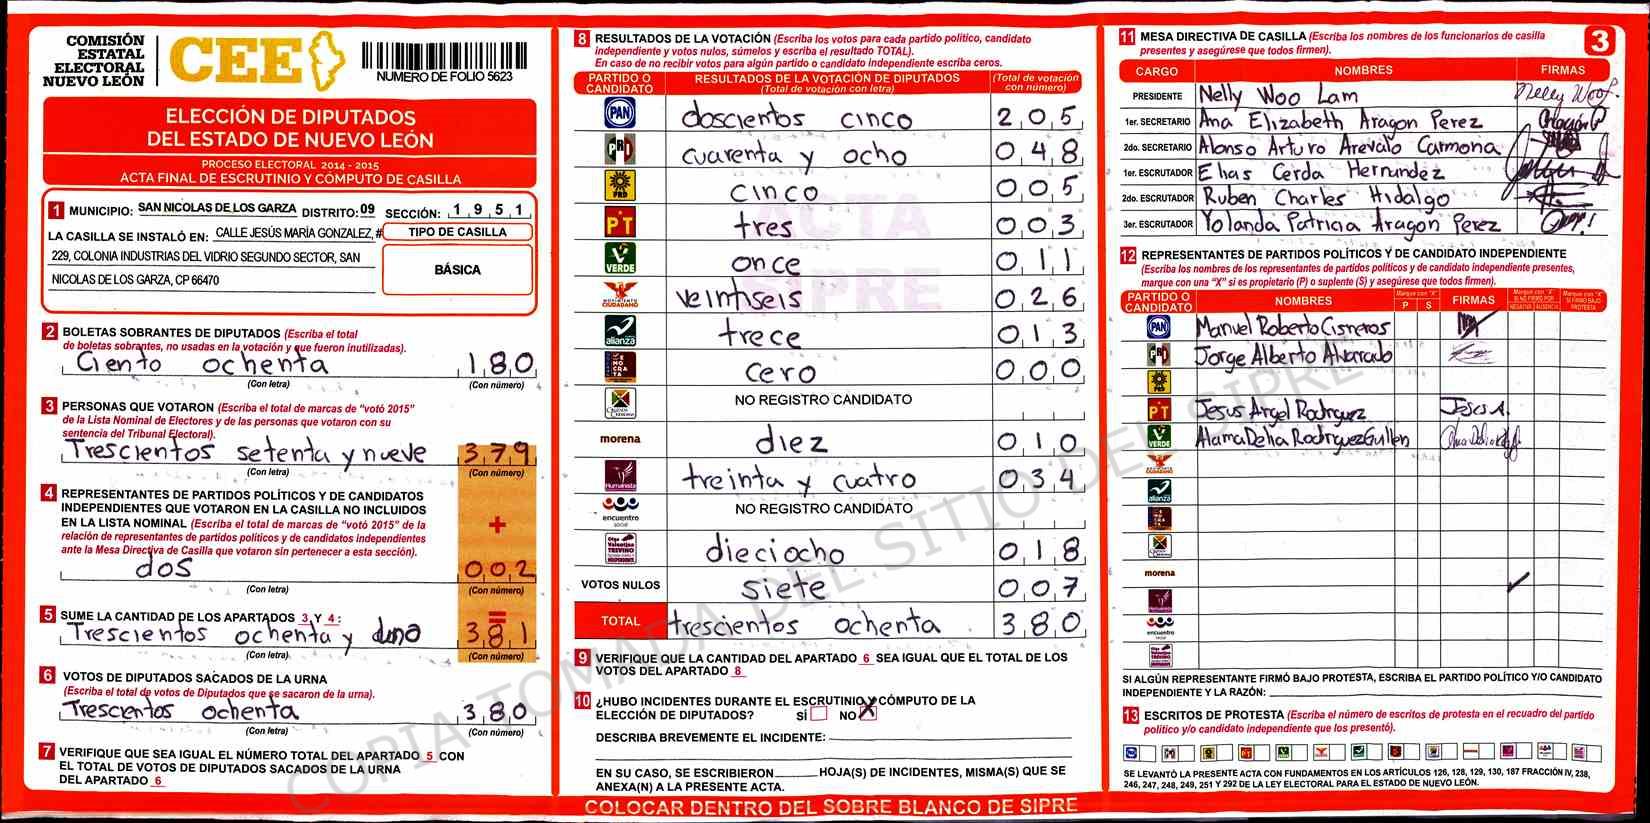 COMISIÓN
ESTATAL
ELECTORAL
NUEVO LEÓN
CEE
NUMERO DE FOLIO 5623
ELECCIÓN DE DIPUTADOS
DEL ESTADO DE NUEVO LEÓN
PROCESO ELECTORAL 2014 - 2015
ACTA FINAL DE ESCRUTINIO Y CÓMPUTO DE CASILLA
1 MUNICIPIO: SAN NICOLAS DE LOS GARZA DISTRITO: 09 SECCIÓN: 1 9 5 1
LA CASILLA SE INSTALÓ EN: CALLE JESÚS MARÍA GONZALEZ, # TIPO DE CASILLA
229, COLONIA INDUSTRIAS DEL VIDRIO SEGUNDO SECTOR, SAN
BÁSICA
NICOLAS DE LOS GARZA, CP 66470
2 BOLETAS SOBRANTES DE DIPUTADOS (Escriba el total
de boletas sobrantes, no usadas en la votación y que fueron inutilizadas).
Ciento ochenta 1 8 0
(Con letra) (Con número)
3 PERSONAS QUE VOTARON (Escriba el total de marcas de "votó 2015"
de la Lista Nominal de Electores y de las personas que votaron con su
sentencia del Tribunal Electoral).
Trescientos setenta y nueve 3 7 9
(Con letra) (Con número)
4 REPRESENTANTES DE PARTIDOS POLÍTICOS Y DE CANDIDATOS
INDEPENDIENTES QUE VOTARON EN LA CASILLA NO INCLUIDOS
EN LA LISTA NOMINAL (Escriba el total de marcas de "votó 2015" de la
relación de representantes de partidos políticos y de candidatos independientes
ante la Mesa Directiva de Casilla que votaron sin pertenecer a esta sección).
+
dos 0 0 2
(Con letra) (Con número)
5 SUME LA CANTIDAD DE LOS APARTADOS 3 Y 4 : =
Trescientos ochenta y uno 3 8 1
(Con letra) (Con número)
6 VOTOS DE DIPUTADOS SACADOS DE LA URNA
(Escriba el total de votos de Diputados que se sacaron de la urna).
Trescientos ochenta 3 8 0
(Con letra) (Con número)
7 VERIFIQUE QUE SEA IGUAL EL NÚMERO TOTAL DEL APARTADO 5 CON
EL TOTAL DE VOTOS DE DIPUTADOS SACADOS DE LA URNA
DEL APARTADO 6
8 RESULTADOS DE LA VOTACIÓN (Escriba los votos para cada partido político, candidato
independiente y votos nulos, súmelos y escriba el resultado TOTAL).
En caso de no recibir votos para algún partido o candidato independiente escriba ceros.
PARTIDO O CANDIDATO RESULTADOS DE LA VOTACIÓN DE DIPUTADOS (Total de votación con letra) (Total de votación con número)
PAN doscientos cinco 2 0 5
PRI cuarenta y ocho 0 4 8
PRD cinco 0 0 5
PT tres 0 0 3
VERDE once 0 1 1
MOVIMIENTO CIUDADANO veintiseis 0 2 6
alianza trece 0 1 3
DEMOCRATA cero 0 0 0
NO REGISTRO CANDIDATO
morena diez 0 1 0
Humanista treinta y cuatro 0 3 4
encuentro social NO REGISTRO CANDIDATO
Olga Valentina TREVIÑO INDEPENDIENTE dieciocho 0 1 8
VOTOS NULOS siete 0 0 7
TOTAL trescientos ochenta 3 8 0
ACTA
SIPRE
9 VERIFIQUE QUE LA CANTIDAD DEL APARTADO 6 SEA IGUAL QUE EL TOTAL DE LOS
VOTOS DEL APARTADO 8
10 ¿HUBO INCIDENTES DURANTE EL ESCRUTINIO Y CÓMPUTO DE LA
ELECCIÓN DE DIPUTADOS? SÍ NO X
DESCRIBA BREVEMENTE EL INCIDENTE:
EN SU CASO, SE ESCRIBIERON HOJA(S) DE INCIDENTES, MISMA(S) QUE SE
ANEXA(N) A LA PRESENTE ACTA.
COLOCAR DENTRO DEL SOBRE BLANCO DE SIPRE
11 MESA DIRECTIVA DE CASILLA (Escriba los nombres de los funcionarios de casilla
presentes y asegúrese que todos firmen).
3
CARGO NOMBRES FIRMAS
PRESIDENTE Nelly Woo Lam Nelly Woo
1er. SECRETARIO Ana Elizabeth Aragon Perez
2do. SECRETARIO Alonso Arturo Arevalo Carmona
1er. ESCRUTADOR Elias Cerda Hernandez
2do. ESCRUTADOR Ruben Charles Hidalgo
3er. ESCRUTADOR Yolanda Patricia Aragon Perez
12 REPRESENTANTES DE PARTIDOS POLÍTICOS Y DE CANDIDATO INDEPENDIENTE
(Escriba los nombres de los representantes de partidos políticos y de candidato independiente presentes,
marque con una "X" si es propietario (P) o suplente (S) y asegúrese que todos firmen).
PARTIDO O CANDIDATO NOMBRES Marque con "X" P S FIRMAS Marque con "X" SI NO FIRMÓ POR NEGATIVA AUSENCIA Marque con "X" SI FIRMÓ BAJO PROTESTA
PAN Manuel Roberto Cisneros
PRI Jorge Alberto Alvarado
PRD
PT Jesus Angel Rodriguez Jesus A.
VERDE Alama Delia Rodriguez Guillen
alianza
morena
Humanista
encuentro social
SI ALGÚN REPRESENTANTE FIRMÓ BAJO PROTESTA, ESCRIBA EL PARTIDO POLÍTICO Y/O CANDIDATO
INDEPENDIENTE Y LA RAZÓN:
13 ESCRITOS DE PROTESTA (Escriba el número de escritos de protesta en el recuadro del partido
político y/o candidato independiente que los presentó).
SE LEVANTÓ LA PRESENTE ACTA CON FUNDAMENTOS EN LOS ARTÍCULOS 126, 128, 129, 130, 187 FRACCIÓN IV, 238,
246, 247, 248, 249, 251 Y 292 DE LA LEY ELECTORAL PARA EL ESTADO DE NUEVO LEÓN.
COPIA TOMADA DEL SITIO DEL SIPRE